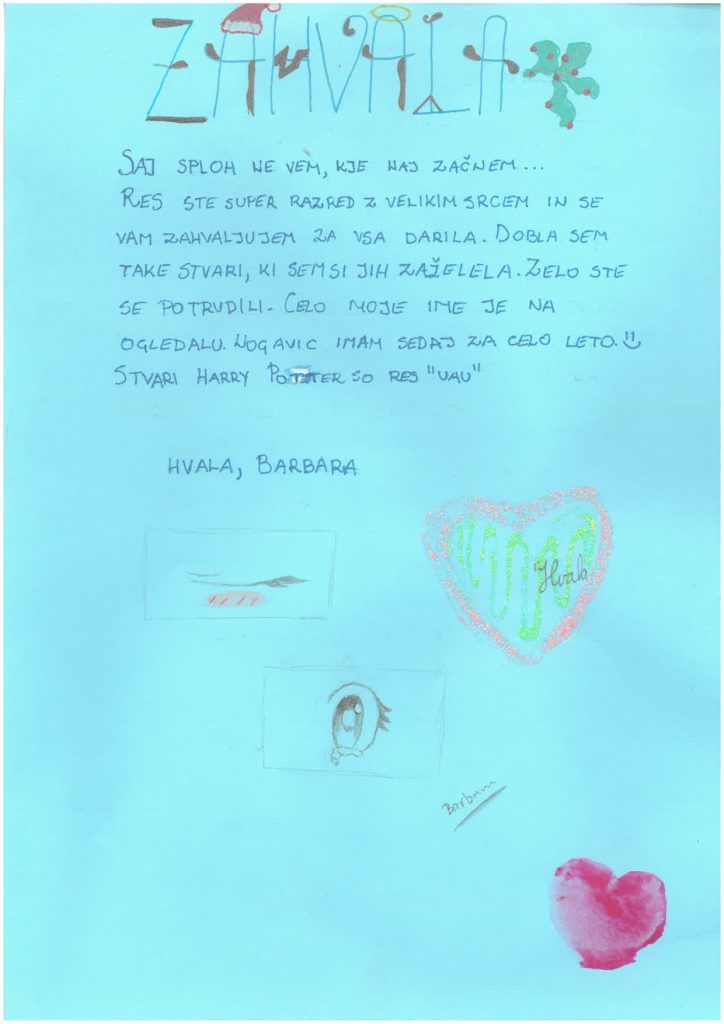 ZAHVALA
SAJ SPLOH NE VEM, KJE NAJ ZAČNEM...
RES STE SUPER RAZRED Z VELIKIM SRCEM IN SE
VAM ZAHVALJUJEM ZA VSA DARILA. DOBLA SEM
TAKE STVARI, KI SEM SI JIH ZAŽELELA. ZELO STE
SE POTRUDILI. CELO MOJE IME JE NA
OGLEDALU. NOGAVIC IMAM SEDAJ ZA CELO LETO. :)
STVARI HARRY POTTER SO RES "UAU"
HVALA, BARBARA
Hvala
Barbara